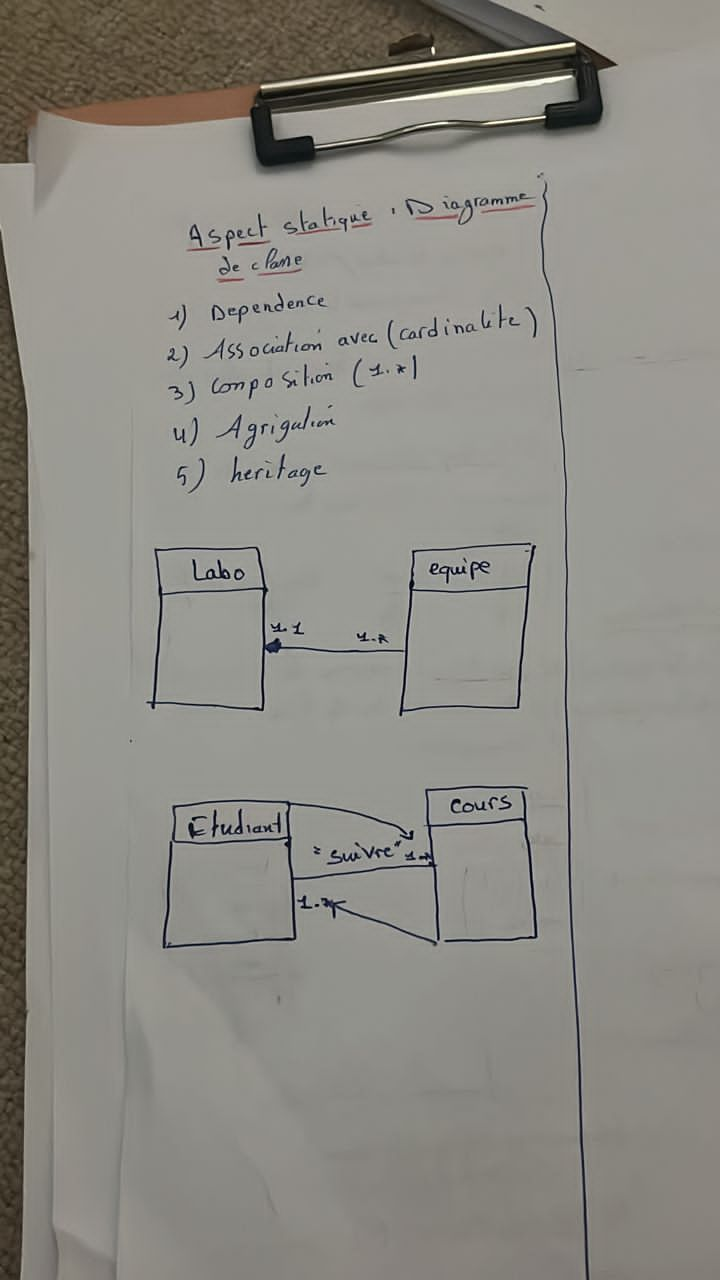 Aspect statique : Diagramme
de classe
1) Dependence
2) Association avec (cardinalite)
3) Composition (1.*)
4) Agrigation
5) heritage
Labo
equipe
1.1
1.*
Etudiant
cours
"suivre"
1.*
1.*